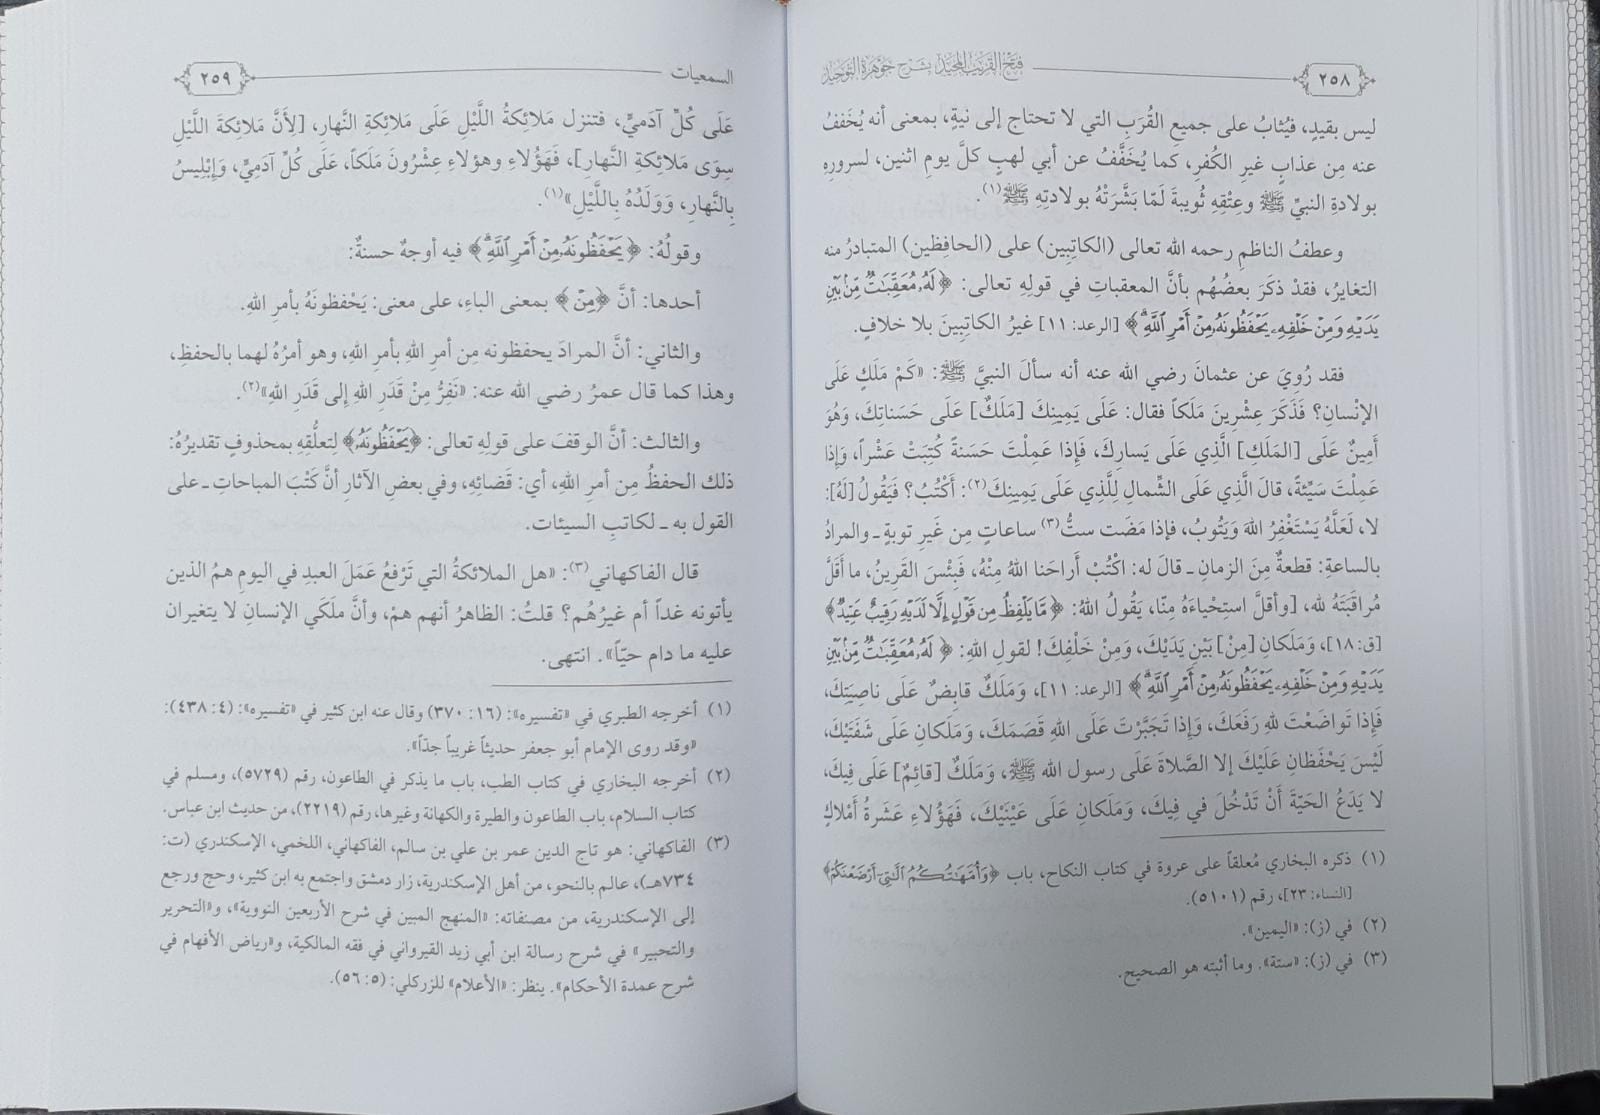 ٢٥٨
فتح القريب المجيد بشرح جوهرة التوحيد
ليس بقيدٍ، فيُثابُ على جميعِ القُرَبِ التي لا تحتاج إلى نيةٍ، بمعنى أنه يُخَففُ
عنه مِن عذابٍ غيرِ الكُفرِ، كما يُخَفَّفُ عن أبي لهبٍ كلَّ يومِ اثنين، لسرورِهِ
بولادةِ النبيِّ ﷺ وعِتْقِهِ ثُويبةَ لَمّا بَشَّرَتْهُ بولادتِهِ ﷺ(١).
وعطفُ الناظمِ رحمه الله تعالى (الكاتِبِين) على (الحافِظِين) المتبادرُ منه
التغايرُ، فقدْ ذكرَ بعضُهُم بأنَّ المعقباتِ في قولِهِ تعالى: ﴿لَهُۥ مُعَقِّبَٰتٌ مِّنۢ بَيْنِ
يَدَيْهِ وَمِنْ خَلْفِهِۦ يَحْفَظُونَهُۥ مِنْ أَمْرِ ٱللَّهِ ۗ﴾ [الرعد: ١١] غيرُ الكاتِبينَ بلا خلافٍ.
فقد رُويَ عن عثمانَ رضي الله عنه أنه سألَ النبيَّ ﷺ: «كَمْ مَلَكٍ عَلَى
الإنْسانِ؟ فَذَكَرَ عِشْرِينَ مَلَكاً فقال: عَلَى يَمِينِكَ [مَلَكٌ] عَلَى حَسَناتِكَ، وَهُوَ
أَمِينٌ عَلَى [المَلَكِ] الَّذِي عَلَى يَسارِكَ، فَإِذا عَمِلْتَ حَسَنَةً كُتِبَتْ عَشْراً، وَإِذا
عَمِلْتَ سَيِّئةً، قالَ الَّذِي عَلَى الشِّمالِ لِلَّذِي عَلَى يَمِينِكَ(٢): أَكْتُبُ؟ فَيَقُولُ [لَهُ]:
لا، لَعَلَّهُ يَسْتَغْفِرُ اللهَ وَيَتُوبُ، فإذا مَضَت ستُّ(٣) ساعاتٍ مِن غَيرِ توبةٍ ـ والمرادُ
بالساعةِ: قطعةٌ مِنَ الزمانِ ـ قالَ له: اكْتُبْ أَراحَنا اللهُ مِنْهُ، فَبِئْسَ القَرِينُ، ما أَقَلَّ
مُراقَبَتَهُ لله، [وأقلَّ استِحْياءَهُ مِنّا، يَقُولُ اللهُ: ﴿مَّا يَلْفِظُ مِن قَوْلٍ إِلَّا لَدَيْهِ رَقِيبٌ عَتِيدٌ﴾
[ق: ١٨]، وَمَلَكانِ [مِنْ] بَيْنِ يَدَيْكَ، وَمِنْ خَلْفِكَ! لقولِ اللهِ: ﴿لَهُۥ مُعَقِّبَٰتٌ مِّنۢ بَيْنِ
يَدَيْهِ وَمِنْ خَلْفِهِۦ يَحْفَظُونَهُۥ مِنْ أَمْرِ ٱللَّهِ ۗ﴾ [الرعد: ١١]، وَمَلَكٌ قابِضٌ عَلَى ناصِيَتِكَ،
فَإِذا تَواضَعْتَ للهِ رَفَعَكَ، وَإِذا تَجَبَّرْتَ عَلَى اللهِ قَصَمَكَ، وَمَلَكانِ عَلَى شَفَتَيْكَ،
لَيْسَ يَحْفَظانِ عَلَيْكَ إلا الصَّلاةَ عَلَى رسول الله ﷺ، وَمَلَكٌ [قائِمٌ] عَلَى فِيكَ،
لا يَدَعُ الحَيّةَ أَنْ تَدْخُلَ في فِيكَ، وَمَلَكانِ عَلَى عَيْنَيْكَ، فَهَؤُلاءِ عَشَرةُ أَمْلاكٍ
(١) ذكره البخاري مُعلقاً على عروة في كتاب النكاح، باب ﴿وَأُمَّهَٰتُكُمُ ٱلَّٰتِىٓ أَرْضَعْنَكُمْ﴾
[النساء: ٢٣]، رقم (٥١٠١).
(٢) في (ز): «اليمين».
(٣) في (ز): «ستة». وما أثبته هو الصحيح.
السمعيات
٢٥٩
عَلَى كُلِّ آدَميٍّ، فتنزل مَلائِكةُ اللَّيْلِ عَلَى مَلائِكةِ النَّهارِ، [لِأَنَّ مَلائِكَةَ اللَّيْلِ
سِوَى مَلائِكةِ النَّهارِ]، فَهَؤُلاءِ وهؤلاءِ عِشْرُونَ مَلَكاً، عَلَى كُلِّ آدَمِيٍّ، وَإِبْلِيسُ
بِالنَّهارِ، وَوَلَدُهُ بِاللَّيْلِ»(١).
وقولُهُ: ﴿يَحْفَظُونَهُۥ مِنْ أَمْرِ ٱللَّهِ ۗ﴾ فيه أوجهٌ حسنةٌ:
أحدها: أنَّ ﴿مِنْ﴾ بمعنى الباءِ، على معنى: يَحْفظونَهُ بأمرِ اللهِ.
والثاني: أنَّ المرادَ يحفظونه مِن أمرِ اللهِ بأمرِ اللهِ، وهو أمرُهُ لهما بالحفظِ،
وهذا كما قال عمرُ رضي الله عنه: «نَفِرُّ مِنْ قَدَرِ اللهِ إلى قَدَرِ اللهِ»(٢).
والثالث: أنَّ الوقفَ على قولِهِ تعالى: ﴿يَحْفَظُونَهُۥ﴾ لتعلُّقِهِ بمحذوفٍ تقديرُهُ:
ذلك الحفظُ مِن أمرِ اللهِ، أي: قَضائِهِ، وفي بعض الآثارِ أنَّ كَتْبَ المباحاتِ ـ على
القول به ـ لكاتبِ السيئات.
قال الفاكهاني(٣): «هل الملائكةُ التي تَرْفعُ عَمَلَ العبدِ في اليومِ همُ الذين
يأتونه غداً أم غيرُهُم؟ قلتُ: الظاهرُ أنهم همْ، وأنَّ ملَكَي الإنسانِ لا يتغيران
عليه ما دام حيّاً». انتهى.
(١) أخرجه الطبري في «تفسيره»: (١٦: ٣٧٠) وقال عنه ابن كثير في «تفسيره»: (٤: ٤٣٨):
«وقد روى الإمام أبو جعفر حديثاً غريباً جدّاً».
(٢) أخرجه البخاري في كتاب الطب، باب ما يذكر في الطاعون، رقم (٥٧٢٩)، ومسلم في
كتاب السلام، باب الطاعون والطيرة والكهانة وغيرها، رقم (٢٢١٩)، من حديث ابن عباس.
(٣) الفاكهاني: هو تاج الدين عمر بن علي بن سالم، الفاكهاني، اللخمي، الإسكندري (ت:
٧٣٤هـ)، عالم بالنحو، من أهل الإسكندرية، زار دمشق واجتمع به ابن كثير، وحج ورجع
إلى الإسكندرية، من مصنفاته: «المنهج المبين في شرح الأربعين النووية»، و«التحرير
والتحبير» في شرح رسالة ابن أبي زيد القيرواني في فقه المالكية، و«رياض الأفهام في
شرح عمدة الأحكام». ينظر: «الأعلام» للزركلي: (٥: ٥٦).